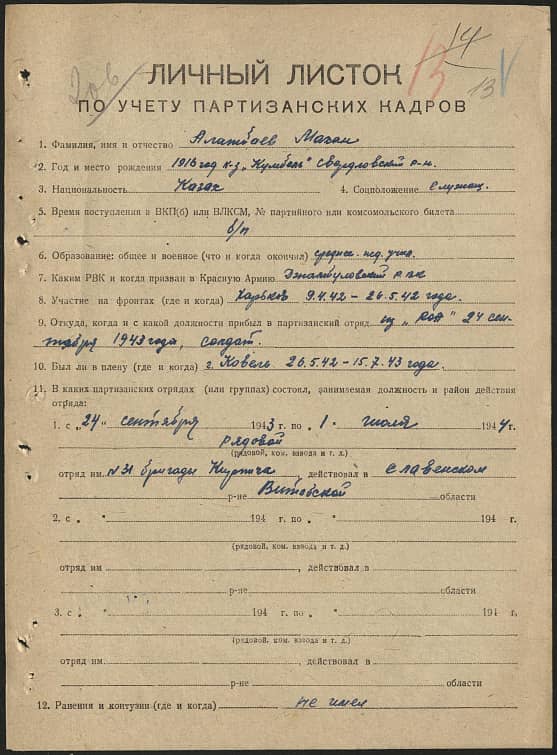 14
13
13
206
ЛИЧНЫЙ ЛИСТОК
ПО УЧЕТУ ПАРТИЗАНСКИХ КАДРОВ
1. Фамилия, имя и отчество Махан
2. Год и место рождения 1916 год к-з "Кумбель" Свердловский р-н.
3. Национальность Казах 4. Соцположение служащ.
5. Время поступления в ВКП(б) или ВЛКСМ, № партийного или комсомольского билета
б/п
6. Образование: общее и военное (что и когда окончил) среднее. пед. учил.
7. Каким РВК и когда призван в Красную Армию Джамбуловский РВК
8. Участие на фронтах (где и когда) Харьков 9.4.42 – 26.5.42 года.
9. Откуда, когда и с какой должности прибыл в партизанский отряд из "РОА" 24 сен-
тября 1943 года, солдат.
10. Был ли в плену (где и когда) г. Ковель 26.5.42 – 15.7.43 года.
11. В каких партизанских отрядах (или группах) состоял, занимаемая должность и район действия
отряда:
1. с „24" сентября 1943 г. по „1" июля 1944 г.
рядовой
(рядовой, ком. взвода и т. д.)
отряд им. №31 бригады Кирпича, действовал в Славенском
р-не Витебской области
2. с „ " 194 г. по „ " 194 г.
(рядовой, ком. взвода и т. д.)
отряд им. , действовал в
р-не области
3. с „ " 194 г. по „ " 194 г.
(рядовой, ком. взвода и т. д.)
отряд им. , действовал в
р-не области
12. Ранения и контузии (где и когда) не имел